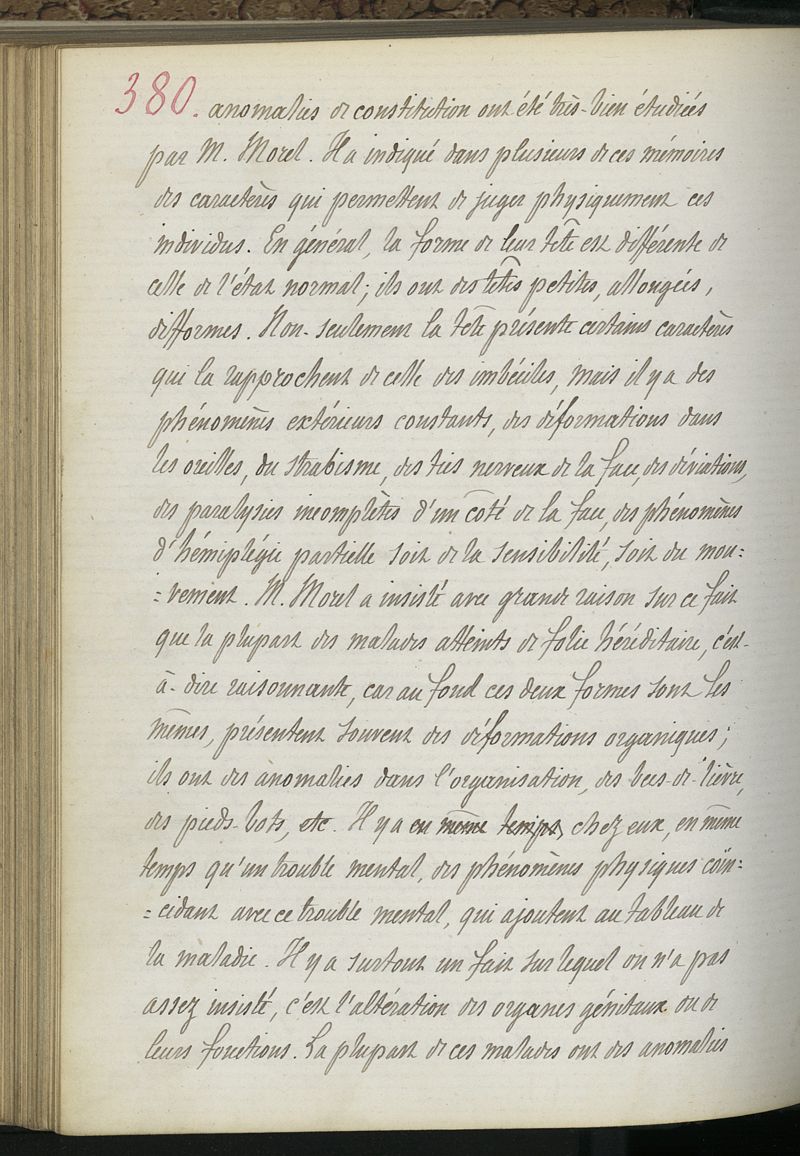 380. anomalies de constitution ont été très-bien étudiées
par M. Morel. Il a indiqué dans plusieurs de ces mémoires
des caractères qui permettent de juger physiquement ces
individus. En général, la forme de leur tête est différente de
celle de l'état normal; ils ont des têtes petites, allongées,
difformes. Non-seulement la tête présente certains caractères
qui la rapprochent de celle des imbéciles, mais il y a des
phénomènes extérieurs constants, des déformations dans
les oreilles, du strabisme, des tics nerveux de la face, des déviations,
des paralysies incomplètes d'un côté de la face, des phénomènes
d'hémiplégie partielle soit de la sensibilité, soit du mou:
=vement. M. Morel a insisté avec grande raison sur ce fait
que la plupart des malades atteints de folie héréditaire, c'est-
à-dire raisonnante, car au fond ces deux formes sont les
mêmes, présentent souvent des déformations organiques;
ils ont des anomalies dans l'organisation, des becs-de-lièvre,
des pieds-bots, etc. Il y a en même temps, chez eux, en même
temps qu'un trouble mental, des phénomènes physiques coïn:
=cidant avec ce trouble mental, qui ajoutent au tableau de
la maladie. Il y a surtout un fait sur lequel on n'a pas
assez insisté, c'est l'altération des organes génitaux ou de
leurs fonctions. La plupart de ces malades ont des anomalies